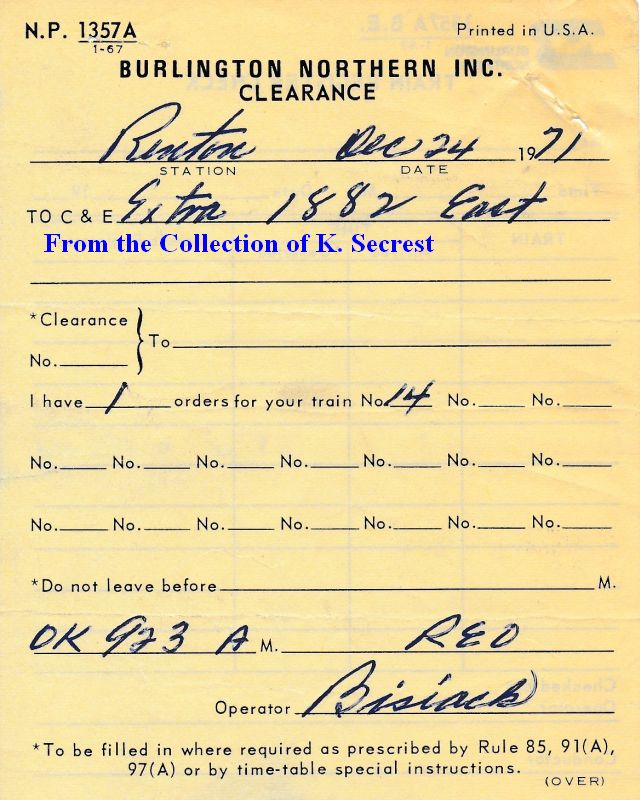 N.P. 1357A Printed in U.S.A.
1-67
BURLINGTON NORTHERN INC.
CLEARANCE
Renton Dec 24 1971
STATION DATE
TO C & E Extra 1882 East
From the Collection of K. Secrest
*Clearance
No. } To
I have 1 orders for your train No. 14 No. No.
No. No. No. No. No. No. No.
No. No. No. No. No. No. No.
*Do not leave before M.
OK 923 A M. RED
Operator Bisiack
*To be filled in where required as prescribed by Rule 85, 91(A),
97(A) or by time-table special instructions.
(OVER)